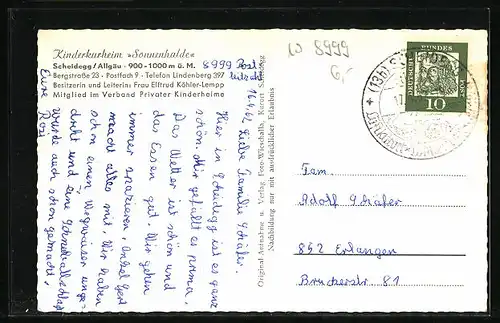 Kinderkurheim »Sonnenhalde«
Scheidegg/Allgäu · 900-1000 m ü. M.
Bergstraße 23 · Postfach 9 · Telefon Lindenberg 397
Besitzerin und Leiterin: Frau Elfrud Köhler-Lempp
Mitglied im Verband Privater Kinderheime
8999
16.4.62
Liebe Familie Schäfer.
Hier in Scheidegg ist es ganz
schön. Mir gefällt es prima.
Das Wetter ist schön und
das Essen gut. Wir gehen
immer spazieren. Onkel Gert
macht alles mit. Wir haben
schon einen Wegweiser umge-
dreht und eine Schneeballschlacht
wurde auch schon gemacht.
Eure
Rosi
Original Aufnahme u. Verlag Foto-Wieschalla, Kurort Scheidegg
Nachbildung nur mit ausdrücklicher Erlaubnis
8999
DEUTSCHE
BUNDESPOST
10
(13b)
17.
Fam.
Adolf Schäfer
852 Erlangen
Bruckerstr. 81